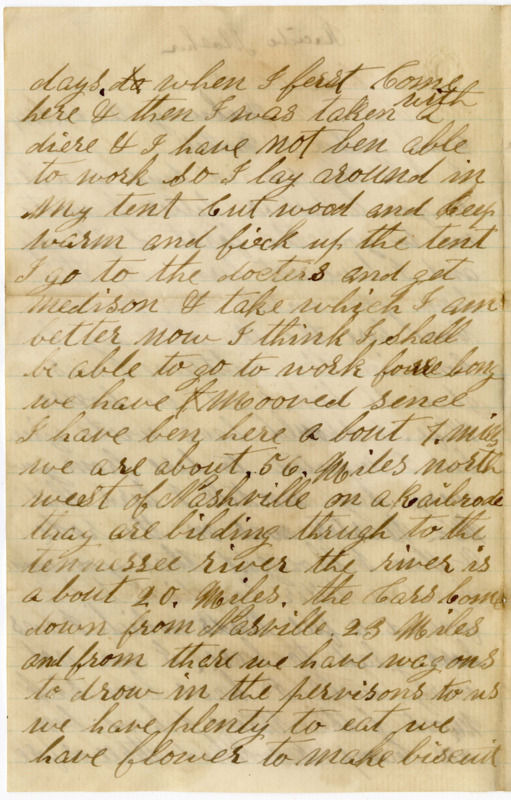 days. to when I ferst Come
here & then I was taken with a
diere & I have not ben able
to work so I lay around in
my tent Cut wood and Keep
warm and fick up the tent
I go to the docters and get
medison & take which I am
better now I think I shall
be able to go to work fore long
we have mooved senee
I have ben here a bout 7. miles
we are about. 56. Miles north
weest of Nashville on a Railrode
thay are bilding thrugh to the
tennessee river the river is
a bout 20. Miles. the Cars Come
down from Nasville. 23 Miles
and from thare we have wagons
to drow in the pervisons to us
we have plenty to eat we
have flower to make biscuit